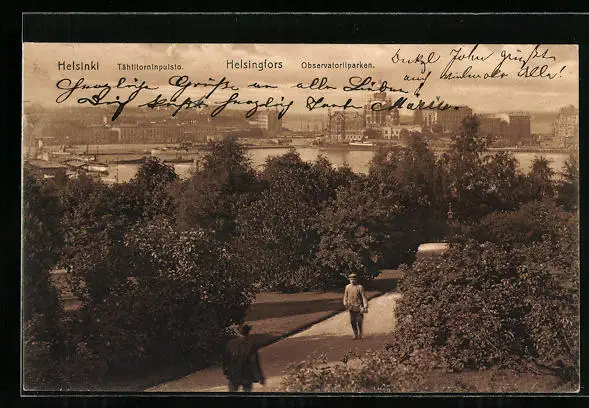 Helsinki Tähtitorninpuisto. Helsingfors Observatoriiparken.
Onkel John grüßt
auch vielmals Alle!
Herzliche Grüße an alle Lieben
Dir herzlich Tante Marie